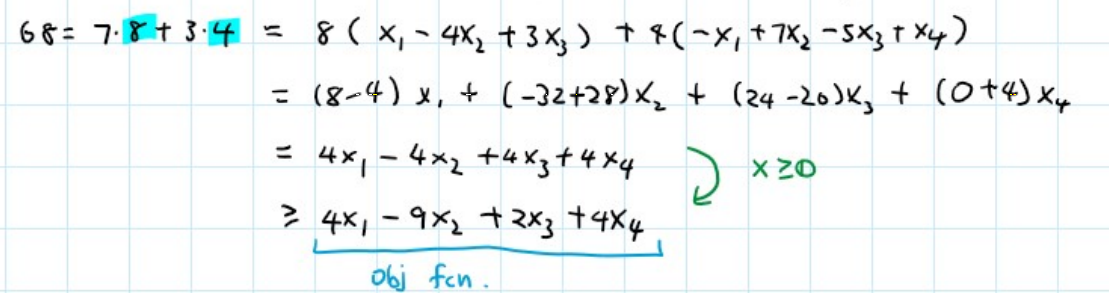 68 = 7·8 + 3·4 = 8 ( x₁ - 4x₂ + 3x₃ ) + 4 (-x₁ + 7x₂ - 5x₃ + x₄ )
= (8-4) x₁ + (-32+28)x₂ + (24 -20)x₃ + (0+4) x₄
= 4x₁ - 4x₂ + 4x₃ + 4x₄ x ≥ 0
≥ 4x₁ - 9x₂ + 2x₃ + 4x₄
Obj fcn.